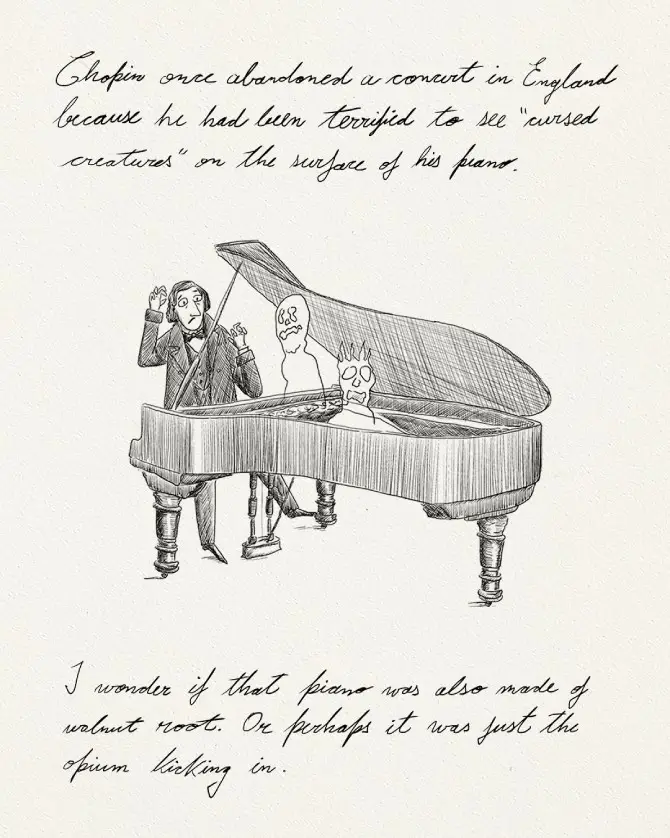 Chopin once abandoned a concert in England
because he had been terrified to see "cursed
creatures" on the surface of his piano.
I wonder if that piano was also made of
walnut root. Or perhaps it was just the
opium kicking in.